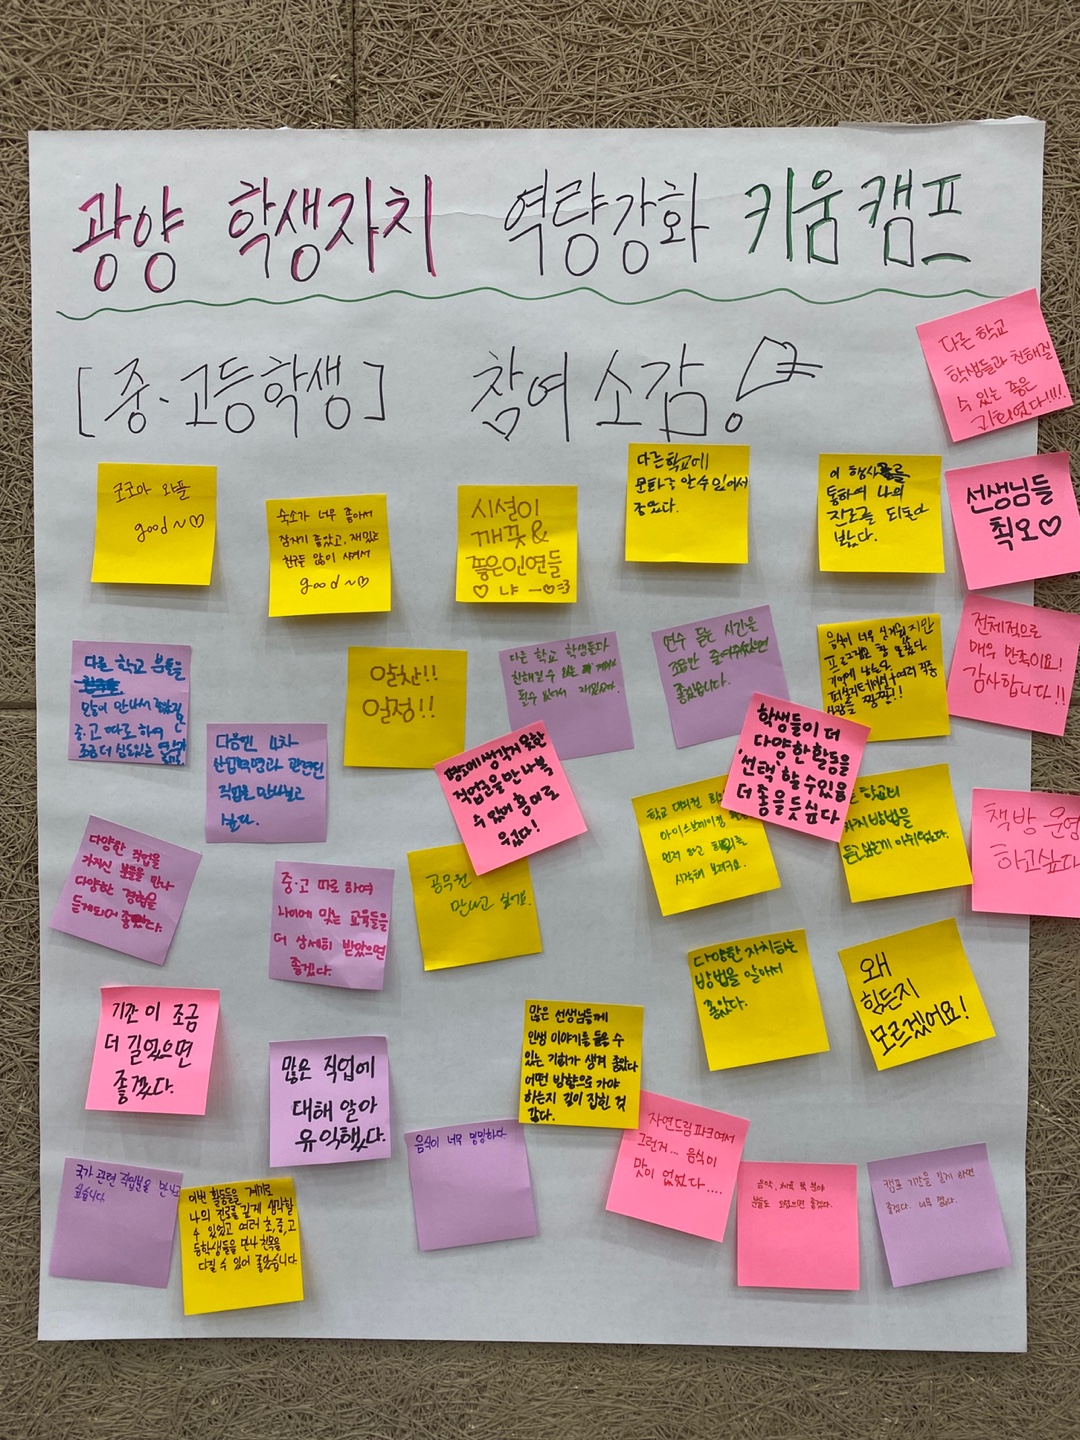 광양 학생자치 역량강화 키움캠프
[중·고등학생] 참여소감!
다른 학교
학생들과 친해질
수 있는 좋은
선생님들
최오♡
전체적으로
매우 만족이요!
감사합니다!!
책방 운영
하고싶다
코코아 와플
good~♡
숙소가 너무 좋아서
잠자기 좋았고, 재밌는
친구도 많이 사겨서
good~♡
시설이
깨끗&
좋은인연들
다른학교에
문화를 알 수 있어서
좋았다.
이 행사를
통하여 나의
진로를 되돌아
봤다.
다른 학교 분들을
많이 만나서 좋았고,
중·고 따로 하여
조금 더 심도있는
다음엔 4차
산업혁명과 관련된
직업을 만나보고
싶다.
알찬!!
일정!!
다른 학교 학생들과
친해질 수
연수 듣는 시간을
조금만 줄여주셨으면
좋겠습니다.
음식이 너무 싱거웠지만
프로그램은 참 알찼다.
평소에 생각지 못한
직업분을 만나볼
수 있어 흥미로
웠다!
학생들이 더
다양한 활동을
'선택'할 수 있음
더 좋을듯 싶다
학교 대티런
아이스브레이킹
먼저 하고
시작해
학교의
자치방법을
아쉬웠다.
다양한 직업을
가지신 분들을 만나
다양한 경험을
듣게되어 좋았다.
중·고 따로 하여
나이에 맞는 교육들을
더 상세히 받았으면
좋겠다.
공무원
만나고 싶어요.
다양한 자치하는
방법을 알아서
좋았다.
왜
힘든지
모르겠어요!
기간이 조금
더 길었으면
좋겠다.
많은 직업에
대해 알아
유익했다.
많은 선생님들께
인생 이야기를 들을 수
있는 기회가 생겨 좋았다
어떤 방향으로 가야
하는지 길이 잡힌 것
같다.
자연드림파크여서
그런가... 음식이
맛이 없었다....
음식이 너무 밍밍하다.
국가 관련 직업분을 만나고
싶습니다.
이번 활동들을 계기로
나의 진로를 깊게 생각할
수 있었고 여러 초,중,고
등학생들을 만나 친목을
다질 수 있어 좋았습니다.
음악, 체육 쪽 분야
분들도 오셨으면 좋겠다.
캠프 기간을 길게 하면
좋겠다. 너무 짧다.